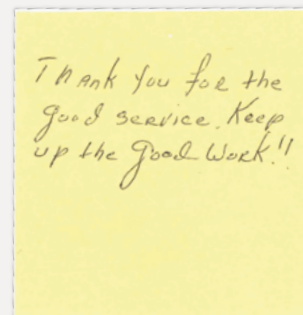 Thank you for the
good service. Keep
up the good work!!